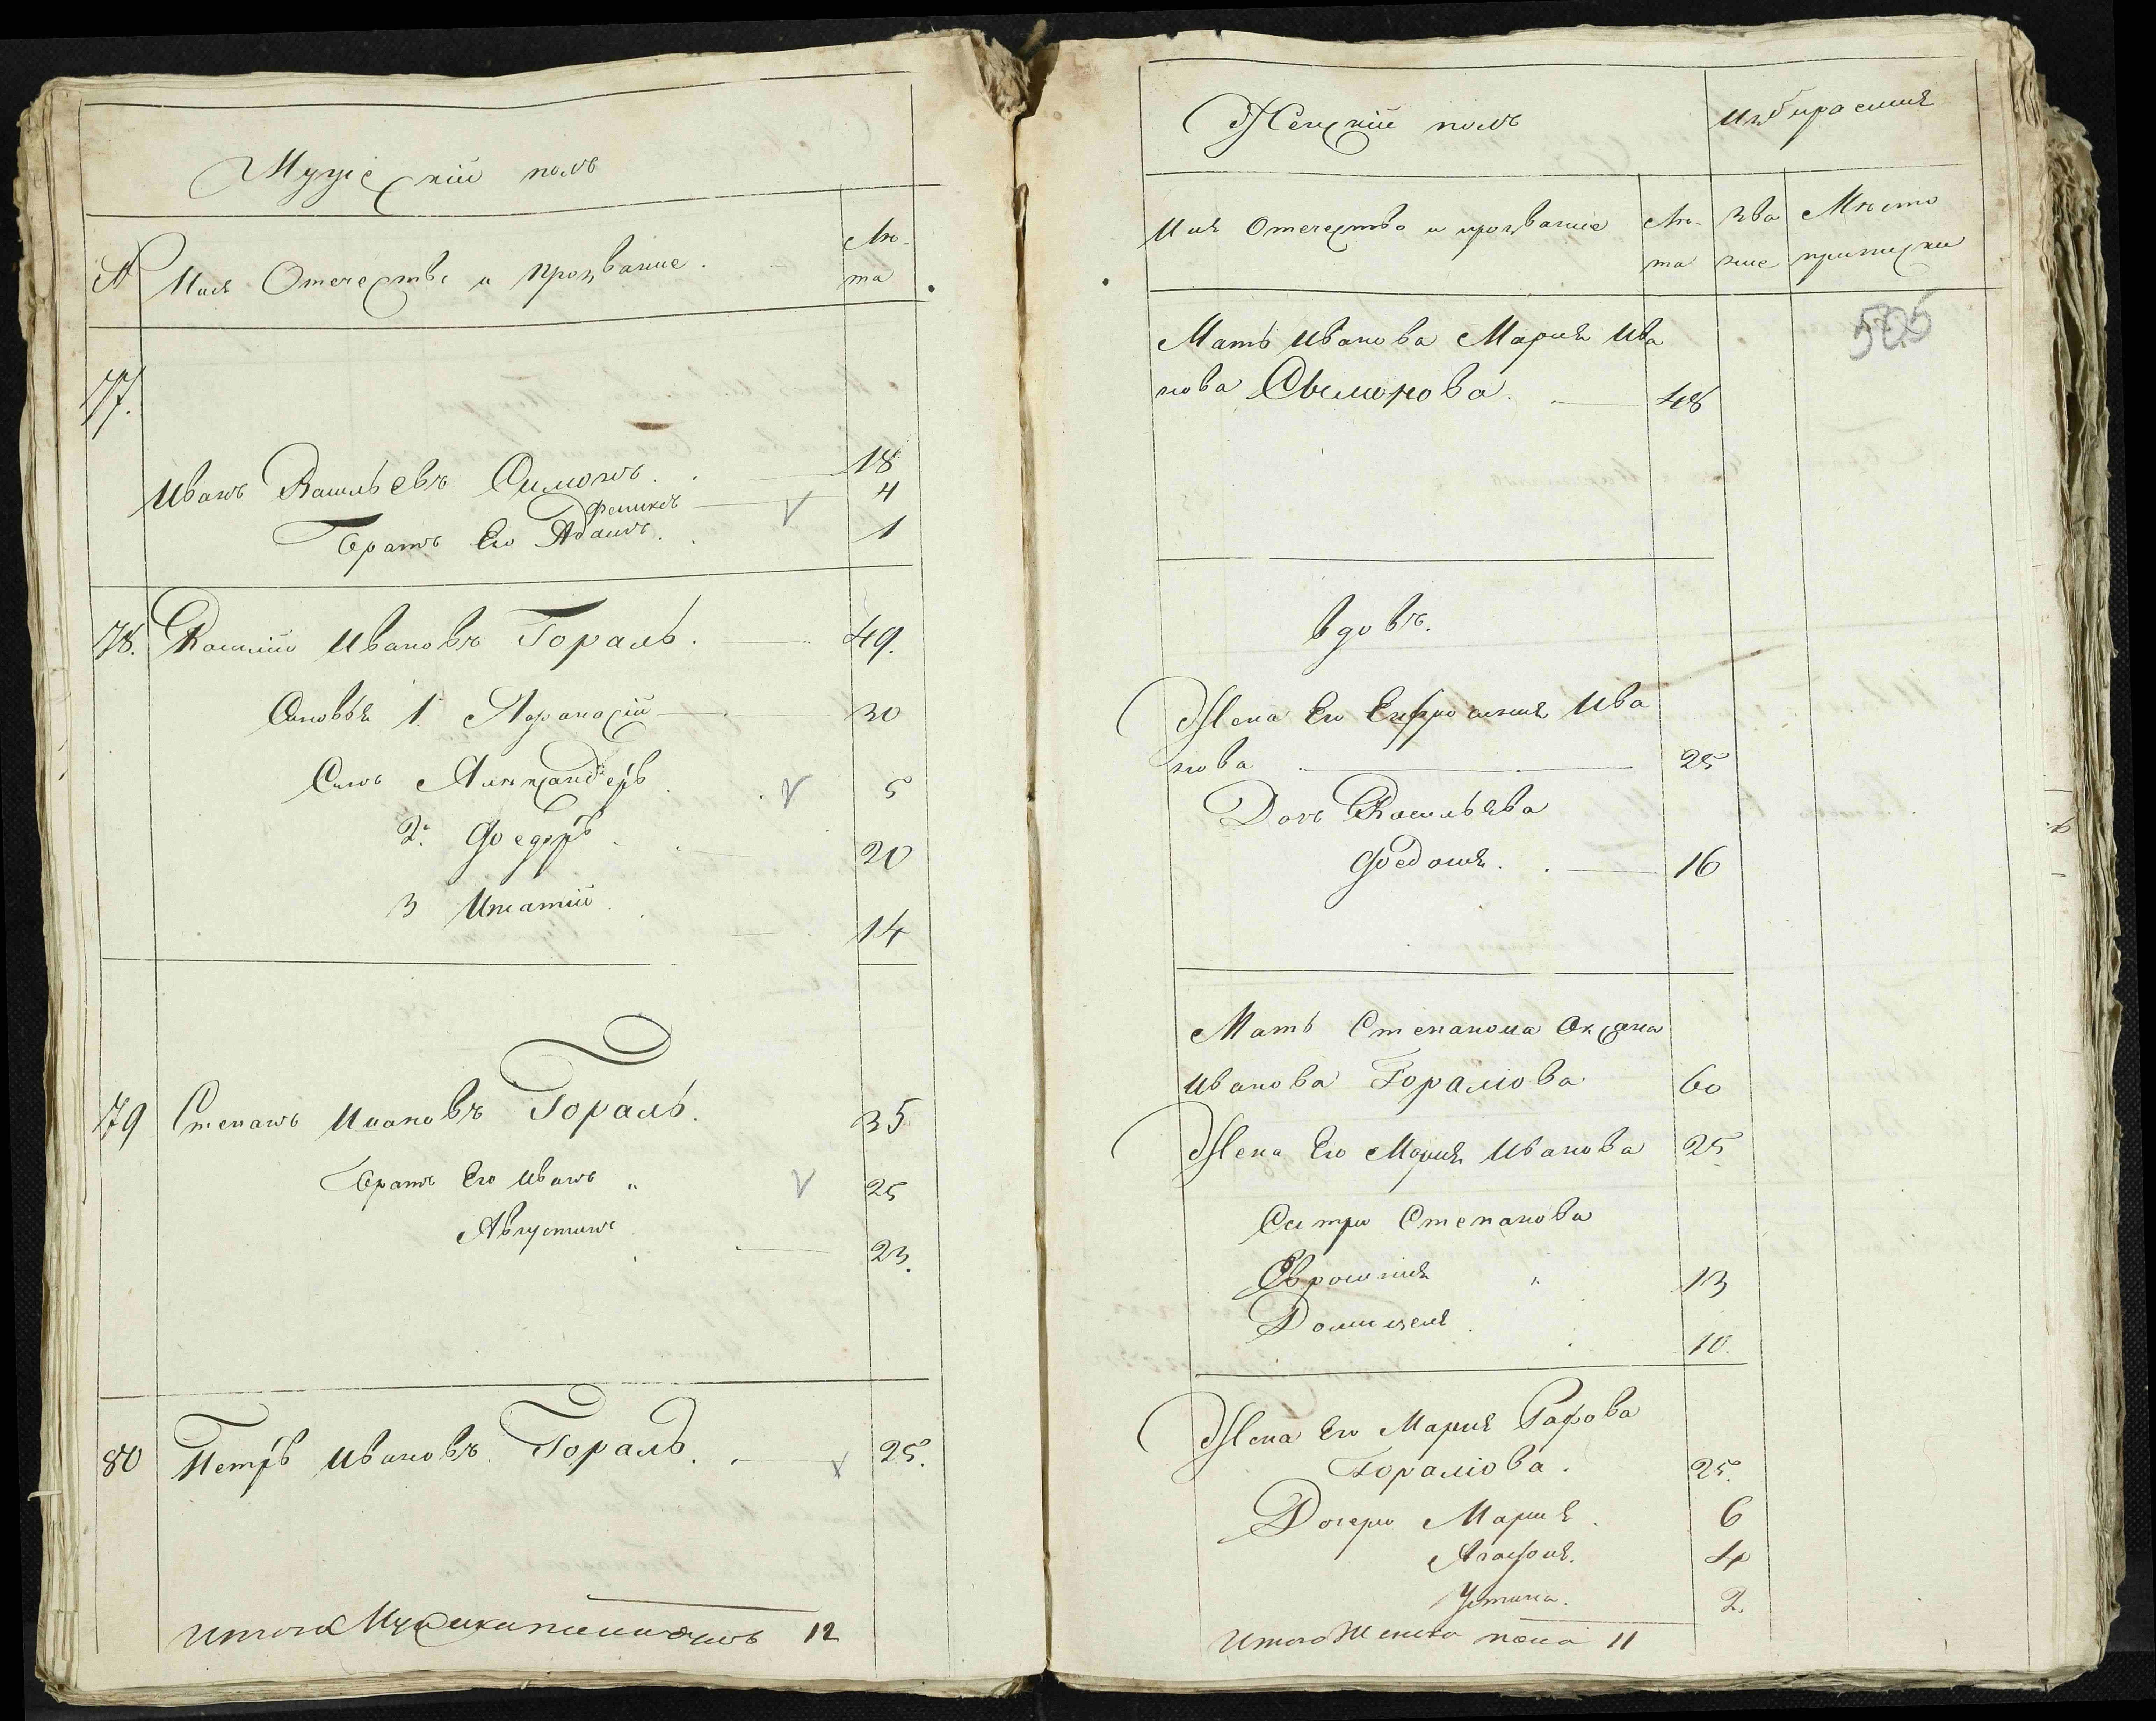 Мужескій полъ
№ Имя Отечество и прозваніе.
Лѣ-
та
77.
Иванъ Васильевъ Симонъ. 18
Феликсъ 4
Братъ Его Адамъ. 1
78. Василій Ивановъ Гораль. 49.
Сыновья 1. Афанасій 30
Сынъ Александеръ 5
2. Фоедоръ 20
3 Игнатій 14
79 Степанъ Ивановъ Гораль. 35
Братъ Его Иванъ „ 25
Августинъ 23.
80 Петръ Ивановъ Гораль. 25.
Итого 12
Женскій полъ
Имя Отечество и прозваніе
Лѣ-
та
Зва
ніе
Мѣсто
приписки
Мать Иванова Марія Ива
нова Сымонова. 48
вдовъ.
Жена Его Ева
нова 25
Дочь Васильева
Фоедошя. 16
Мать Степанова Оксана
Иванова Горалюва 60
Жена Его Марія Иванова 25
Сестры Степанова
13
Домицеля 10.
Жена Его Марія
Горалюва. 25.
Дочери Марія. 6
Агафія. 4
Устина. 2.
Итого Женска пола 11